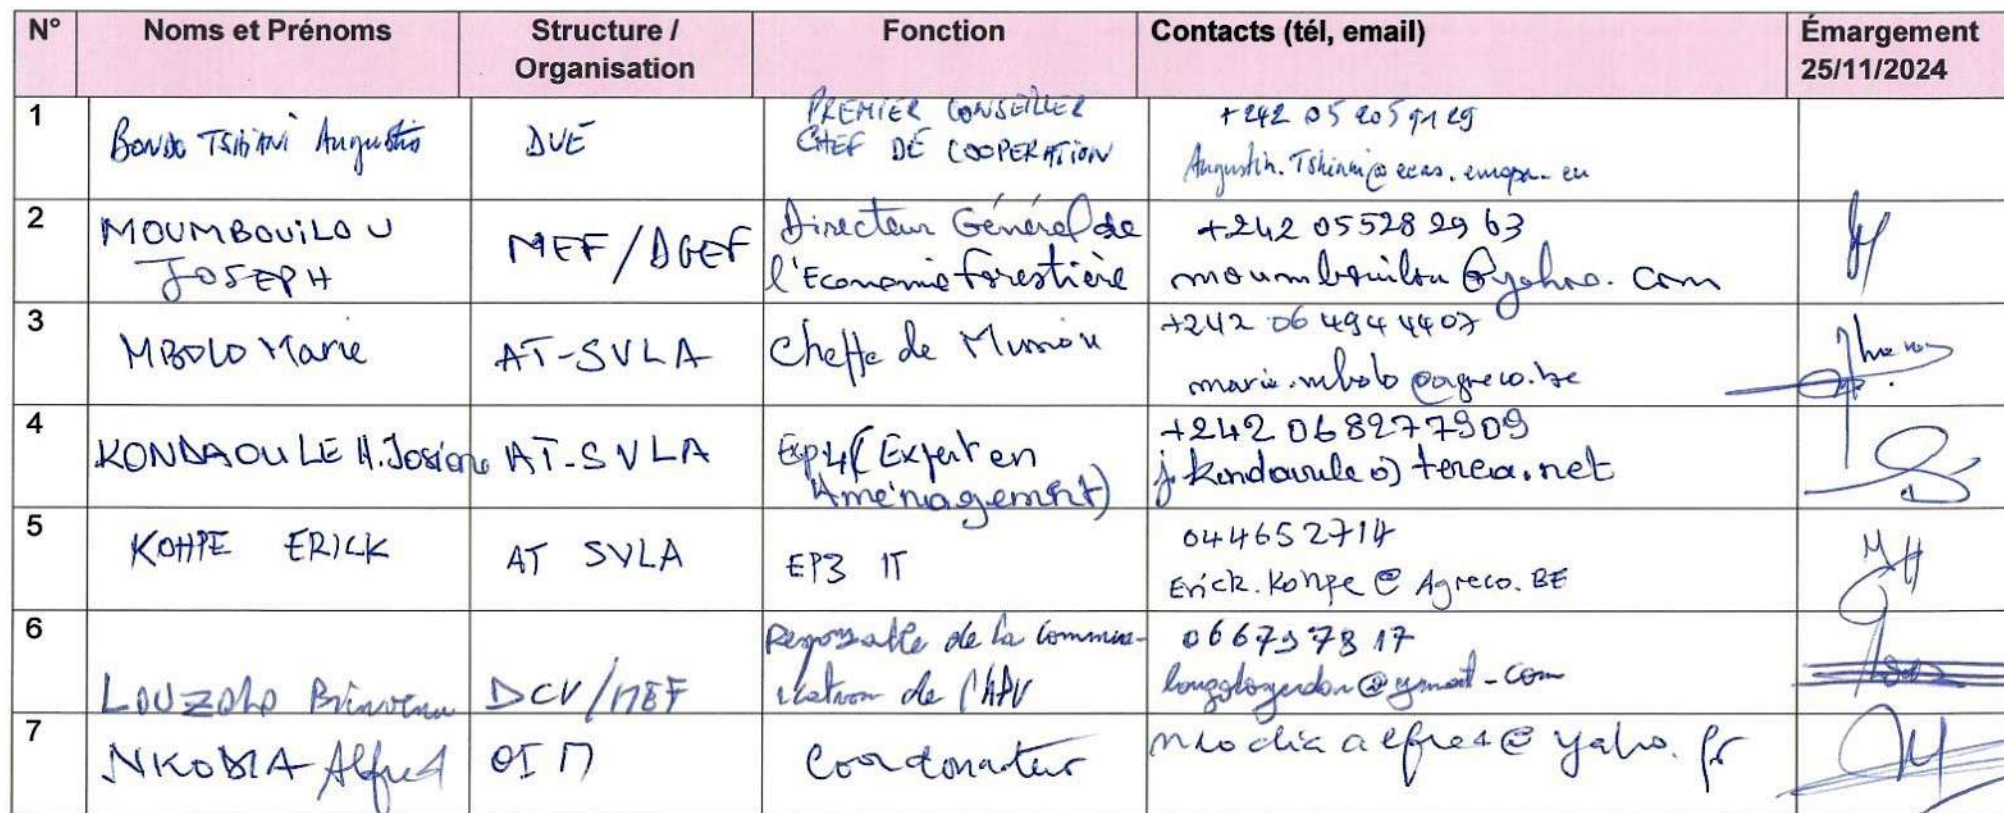 N° Noms et Prénoms Structure / Organisation Fonction Contacts (tél, email) Émargement 25/11/2024
1 BONDO TSHIANI Augustin DUE PREMIER CONSEILLER CHEF DE COOPERATION +242 05 205 91 29
Augustin.Tshiani@eeas.europa.eu
2 MOUMBOUILOU JOSEPH MEF/DGEF Directeur Général de l'Economie forestière +242 05528 29 63
moumbouilou@yahoo.com
3 MBOLO Marie AT-SVLA Cheffe de Mission +242 06 494 4407
marie.mbolo@agreco.be
4 KONDAOULE H. Josiane AT-SVLA Exp4 (Expert en Aménagement) +242 068277909
j.kondaoule@terea.net
5 KOHPE ERICK AT SVLA EP3 IT 044652714
Erick.Kohpe@Agreco.BE
6 LOUZOLO Bienvenu DCV/MEF Responsable de la Communication de l'APV 066797817
7 NKODIA Alfred OIM Coordonateur nkodiaalfred@yahoo.fr